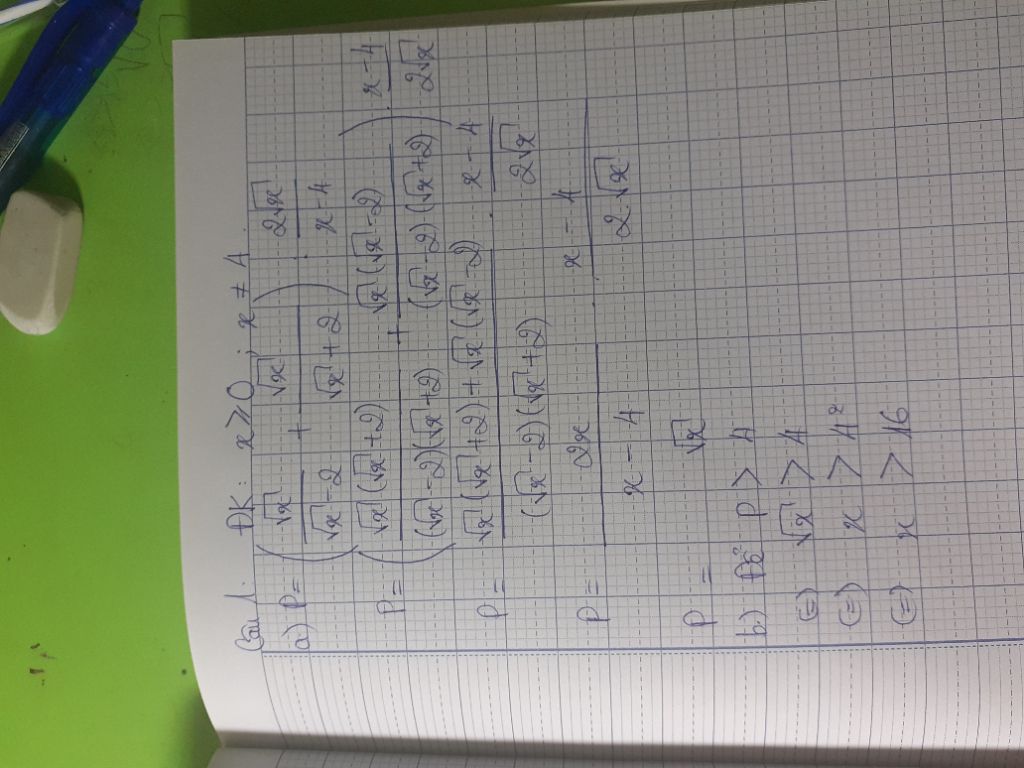 Câu 1. ĐK: x ≥ 0; x ≠ 4
a) P = (√x/(√x - 2) + √x/(√x + 2)) . 2√x/(x - 4)
P = (√x(√x + 2)/((√x - 2)(√x + 2)) + √x(√x - 2)/((√x - 2)(√x + 2))) . (x - 4)/(2√x)
P = (√x(√x + 2) + √x(√x - 2))/((√x - 2)(√x + 2)) . (x - 4)/(2√x)
P = 2x/(x - 4) . (x - 4)/(2√x)
P = √x
b) Để P > 4
(=) √x > 4
(=) x > 4²
(=) x > 16